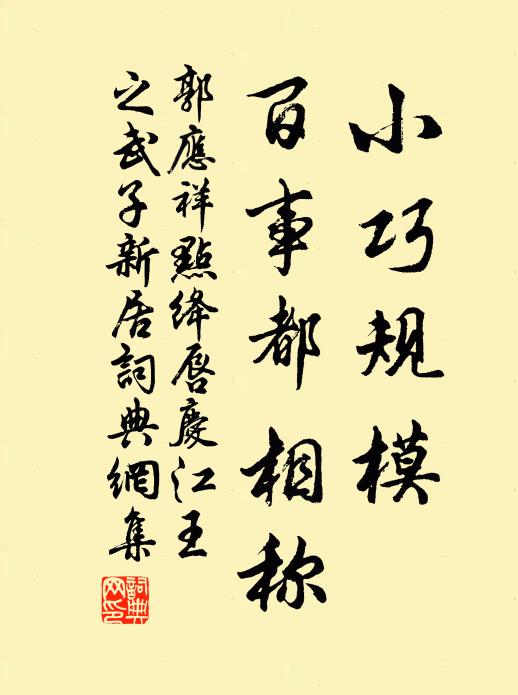 小巧规模
百事都相称
郭應祥點绛唇慶江王
之武子新居詞典網集
詞典网印